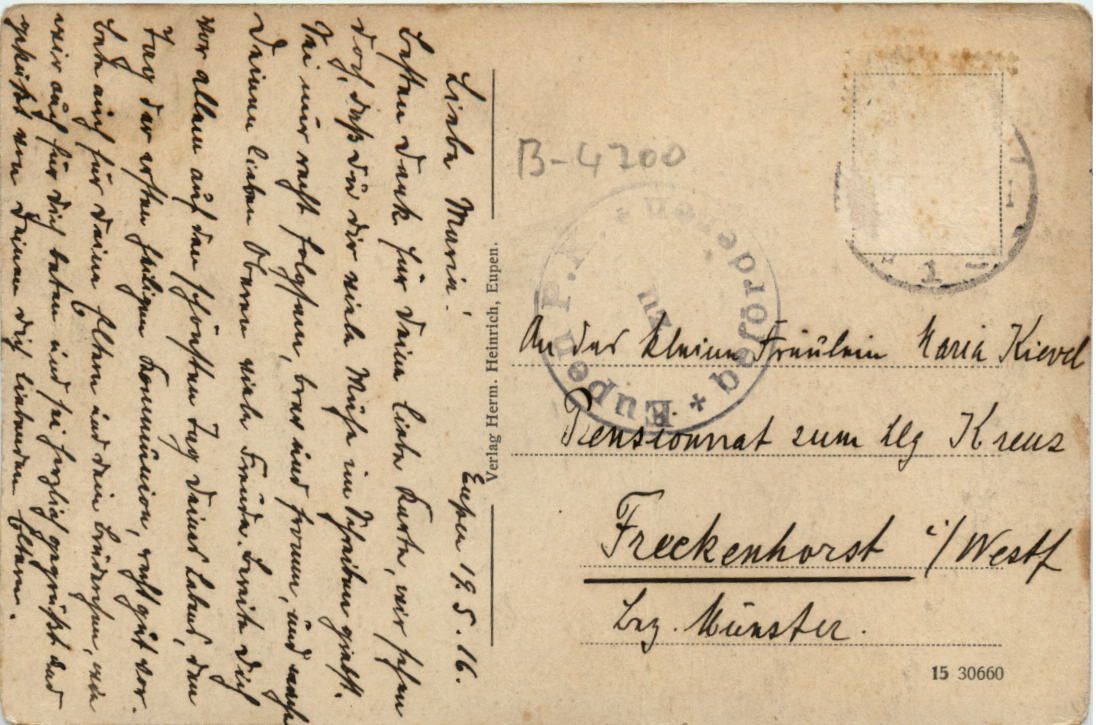 Eupen 19.5.16.
Liebe Maria!
Besten Dank für deine liebe Karte, wir sehen
doch, daß du dir viele Mühe im Schreiben giebst.
Sei nur recht folgsam, brav und fromm, und mache
deinen lieben Oberen viele Freude. Bereite dich
vor allem auf den schönsten Tag deines Lebens, den
Tag der ersten heiligen Kommunion, recht gut vor.
Bete auch für deine Eltern und dein Brüderchen, wie
wir auch für dich beten und sei herzlich gegrüßt und
geküßt von deinen dich liebenden Eltern.
Verlag Herm. Heinrich, Eupen.
B-4700
Eupen P.K. * zu befördern *
An das kleine Fräulein Maria Kievel
Pensionnat zum hlg Kreuz
Freckenhorst i/Westf
Bez. Münster.
15 30660